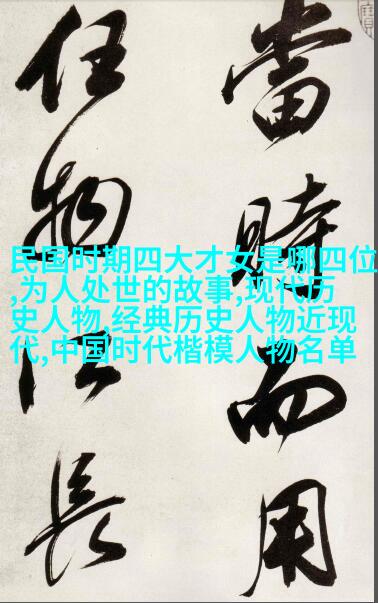 當時而用
任物長
民国时期四大才女是哪四位
,为人处世的故事,现代历
史人物,经典历史人物近现
代,中国时代楷模人物名单